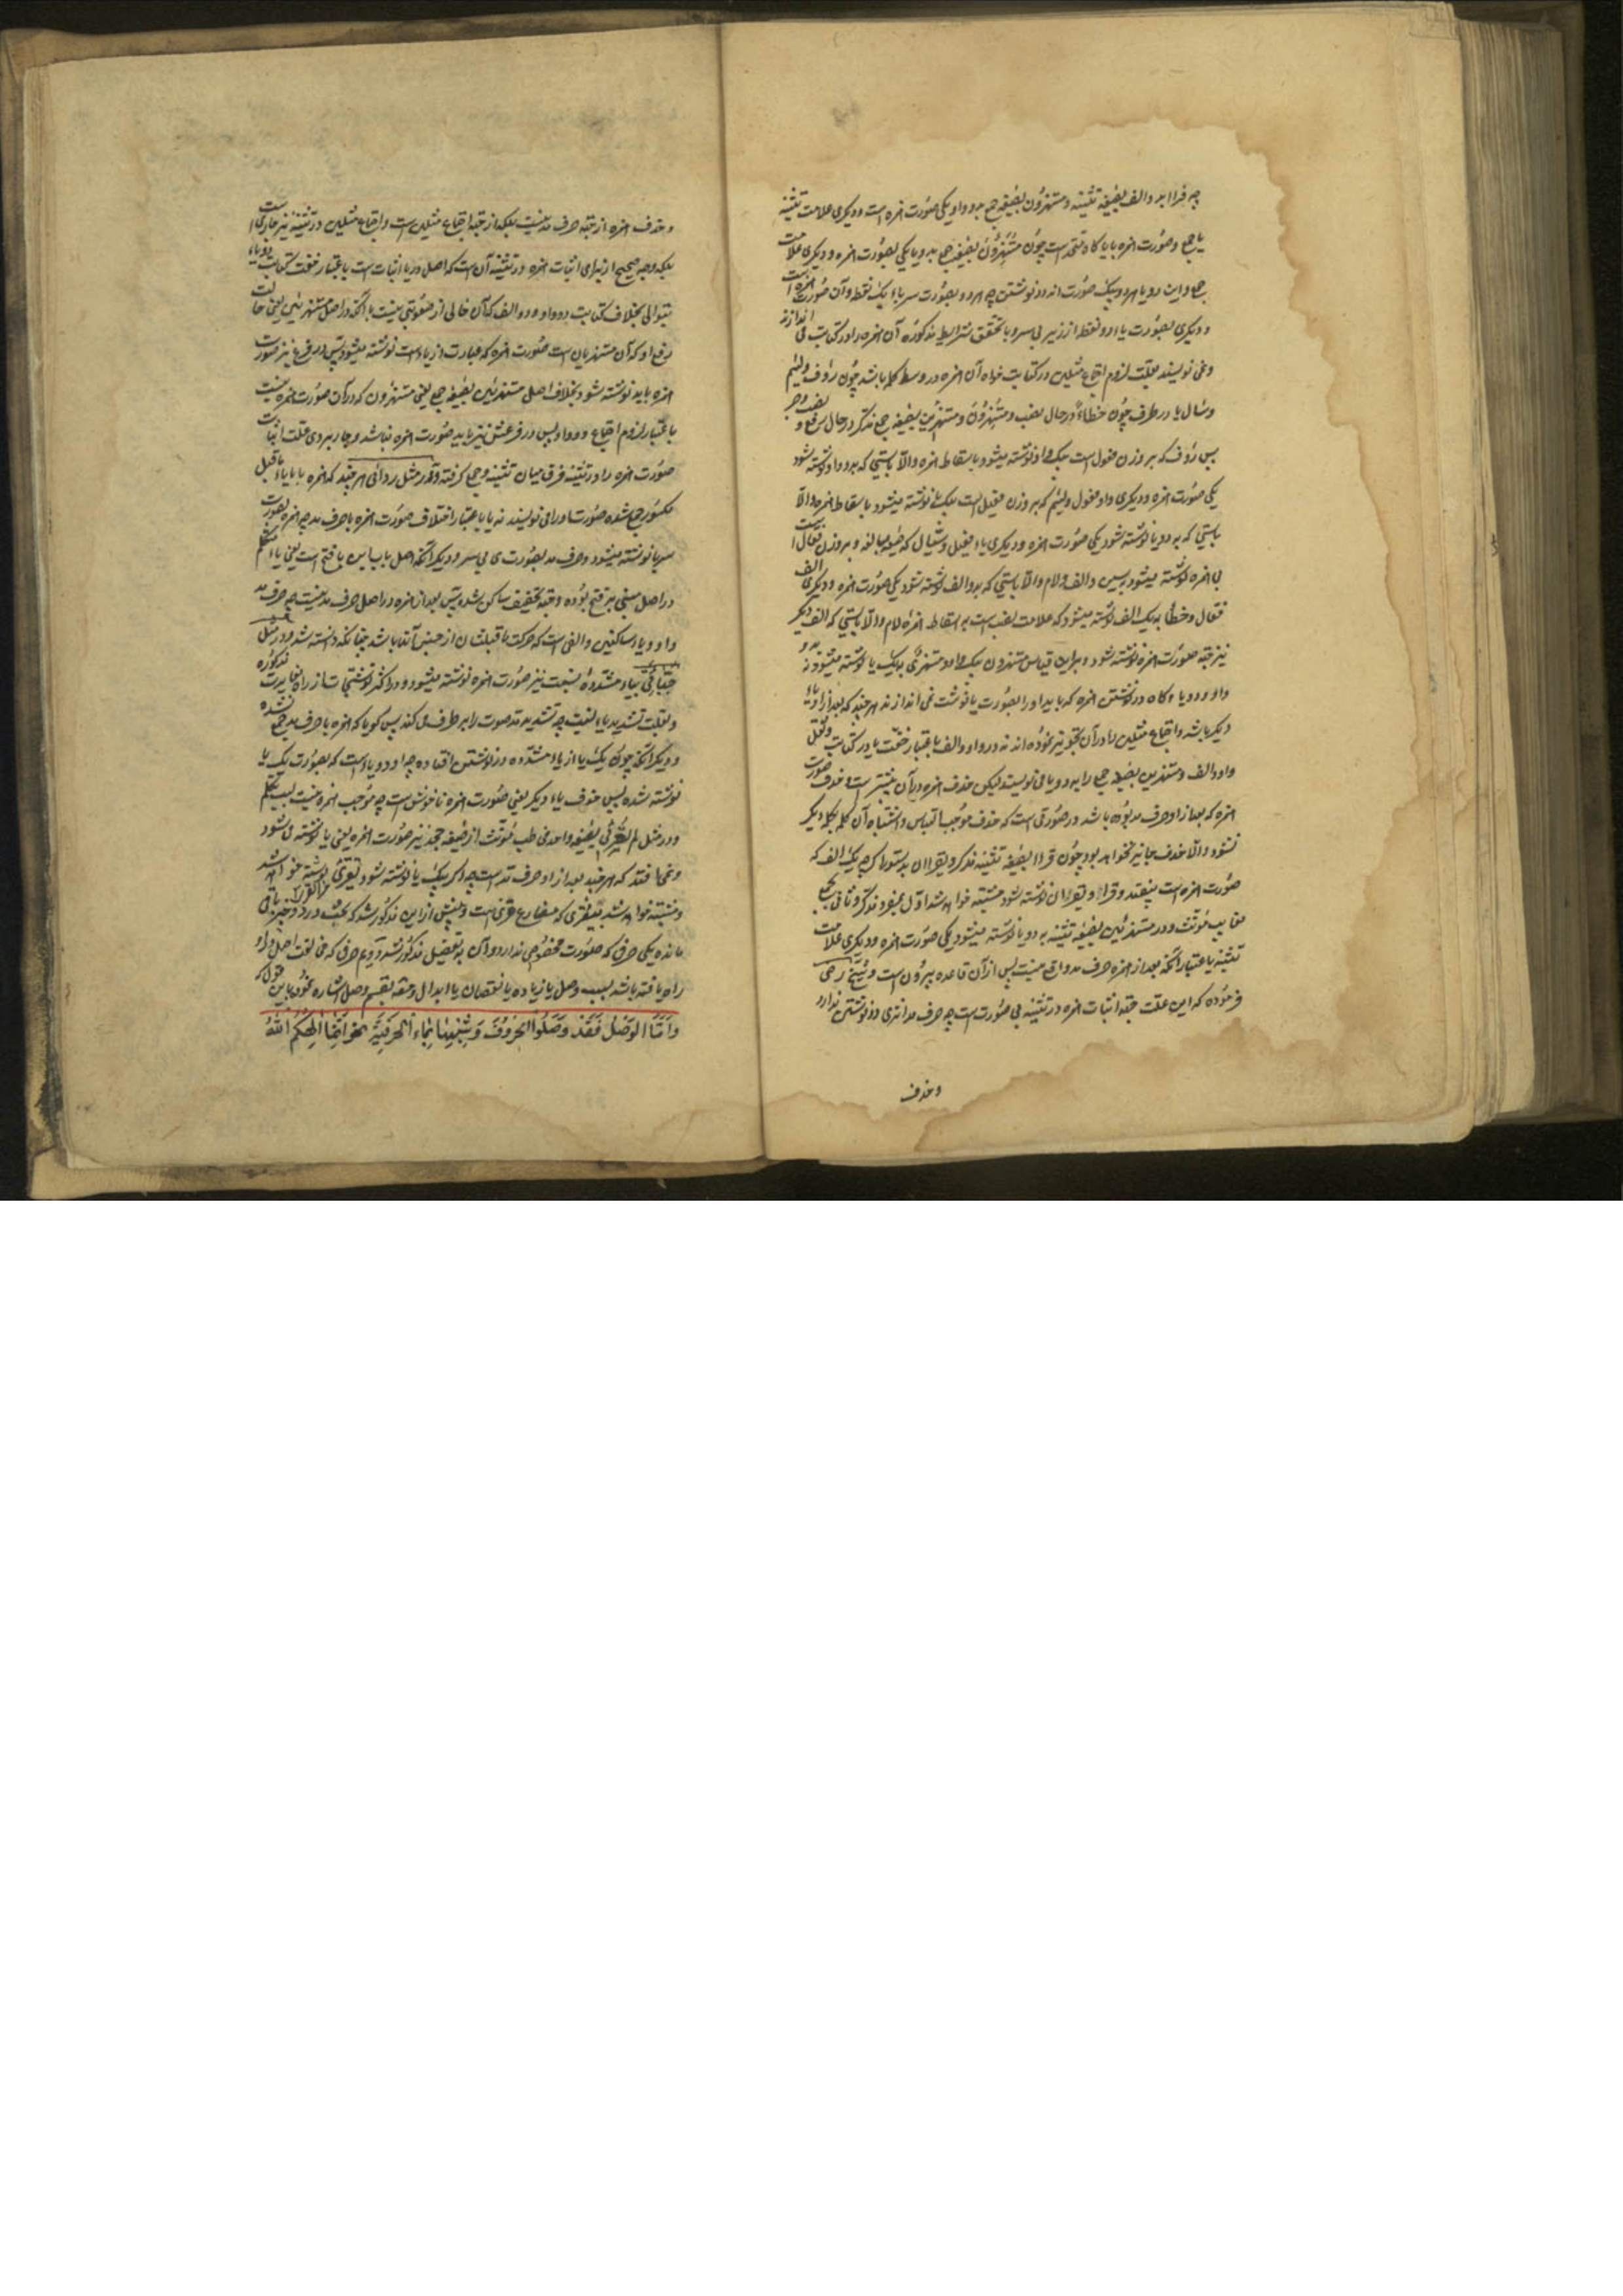 چه قراا بدو الف بصیغه تثنیه و مستهزؤن بصیغه جمع بدو واو یکی صورت همزه است و دیگری علامت تثنیه
یا جمع و صورت همزه با یا کاه متحد است چون مستهزؤن بصیغه جمع بدو یا یکی بصورت همزه و دیگری علامت
جمع و این دو یا هر دو بیک صورت اند در نوشتن چه هر دو بصورت سر یاء یک نقط و آن صورت همزه است
و دیگری بصورت یا دو نقط از زیر بی سر و با تحقق شرایط مذکوره آن همزه را در کتابت می اندازند
و نمی نویسند بعلت لزوم اجتماع مثلین در کتابت خواه آن همزه در وسط کلمه باشد چون رؤف و لئیم
و سئال یا در طرف چون خطاءً در حال نصب و مستهزؤن و مستهزئین بصیغه جمع مذکر در حال رفع و نصب و جر
پس رؤف که بر وزن فعول است بیک واو نوشته میشود باسقاط همزه والا بایستی که بدو واو نوشته شود
یکی صورت همزه و دیگری واو فعول و لئیم که بر وزن فعیل است بیک یا نوشته میشود باسقاط همزه والا
بایستی که بدو یا نوشته شود یکی صورت همزه و دیگری یاء فعیل و سئال که صیغه مبالغه و بر وزن فعال است
بی همزه نوشته میشود بسین و الف و لام والا بایستی که بدو الف نوشته شود یکی صورت همزه و دیگری الف
فعال و خطأ به یک الف نوشته میشود که علامت نصب است به اسقاط همزه لام والا بایستی که الف دیگر
نیز جهة صورت همزه نوشته شود و براین قیاس مستهزون بیک واو و مستهزئی بیک یا نوشته میشود نه بدو
واو و دو یا و کاه در نوشتن همزه که باید او را بصورت یا نوشت نمی اندازند هر چند که بعد از او یاء
دیگر باشد و اجتماع مثلین را در آن تجویز نموده اند نه در واو و الف باعتبار خفت یا در کتابت و ثقل
واو و الف و مستهزین بصیغه جمع را بدو یا می نویسند لیکن حذف همزه در آن بیشتر است و حذف صورت
همزه که بعد از او حرف مد بوده باشد در صورتی است که حذف موجب التباس و اشتباه آن کلمه بکلمه دیگر
نشود والا حذف جایز نخواهد بود چون قراا بصیغه تثنیه مذکر و یقراان بدستور که هر یک الف که
صورت همزه است بیفتد و قرا و یقران نوشته شود مشتبه خواهد شد اول بمفرد مذکر و ثانی بجمع
غایب مؤنث و در مستهزئین بصیغه تثنیه بدو یا نوشته میشود یکی صورت همزه و دیگری علامت
تثنیه یا اعتبار آنکه بعد از همزه حرف مد واقع نیست پس از آن قاعده بیرون است و شیخ رضی
فرموده که این علت جهة اثبات همزه در تثنیه بی صورت است چه حرف مد اثری در نوشتن ندارد
و حذف
و حذف همزه از جهة حرف مد نیست بلکه از جهة اجتماع مثلین است و اجتماع مثلین در تثنیه نیز جاری است
بلکه وجه صحیح از برای اثبات همزه در تثنیه آن است که اصل در یا اثبات است باعتبار خفت کتابت دو یاء
متوالی بخلاف کتابت دو واو و دو الف که آن خالی از صعوبتی نیست با آنکه در اصل مستهزئین یعنی حالت
رفع او که آن مستهزیان است صورت همزه که عبارت از یاء است نوشته میشود پس در فرع نیز صورت
همزه باید نوشته شود بخلاف اصل مستهزئین بصیغه جمع یعنی مستهزؤن که در آن صورت همزه نیست
باعتبار لزوم اجتماع دو واو پس در فرعش نیز باید صورت همزه نباشد و جاربردی علت اثبات
صورت همزه را در تثنیه فرق میان تثنیه و جمع کرفته و در مثل ردائی هر چند که همزه با یاء ما قبل
مکسور جمع شده صورت او را می نویسند نه یا باعتبار اختلاف صورت همزه با حرف مد چه همزه بصورت
سر یا نوشته میشود و حرف مد بصورت ی بی سر و دیگر آنکه اصل باب این یا فتح است یعنی یاء متکلم
در اصل مبنی بر فتح بوده و جهة تخفیف ساکن شد پس بعد از همزه در اصل حرف مد نیست چه حرف مد
واو و یاء ساکنین و الفی است که حرکت ما قبلشان از جنس آنها باشد چنانکه دانسته شد و در مثل
حنائی بیاء مشدده نسبت نیز صورت همزه نوشته میشود در اکثر نوشتجات از راه مغایرت مذکوره
و بعلت تشدید یاء نسبت چه تشدید مد صوت را بر طرف می کند پس کویا که همزه با حرف مد جمع نشده
و دیگر آنکه چون یک یا از یاء مشدده در نوشتن افتاده چه او دو یاء است که بصورت یک یا
نوشته شده پس حذف یاء دیگر یعنی صورت همزه ناخوش است چه موجب همزه نیست
و در مثل لم تقرئی بصیغه واحده مخاطب مؤنث از صیغه جحد نیز صورت همزه یعنی یا نوشته می شود
و نمی افتد که هر چند بعد از او حرف مد است چه اکر بیک یا نوشته شود تقری نوشته خواهد شد
و مشتبه خواهد شد بتقری که مضارع قری است و پیش از این مذکور شد که بحث در دو چیز باقی
مانده یکی حرفی که صورت مخصوصی ندارد و آن بتفصیل مذکور شد دویم حرفی که مخالفت اصل در او
راه یافته باشد بسبب وصل یا زیاده یا نقصان یا ابدال و مصنف بقسم وصل اشاره نمود باین قول که
وَاَمَّا الوَصْلُ فَقَدْ وَصَلُوا الحُرُوفَ وَشِبْهَهَا بِمَاءِ الْحَرْفِیَّةِ نَحْوَ اِنَّمَا اِلٰهُکُمُ اللّٰهُ